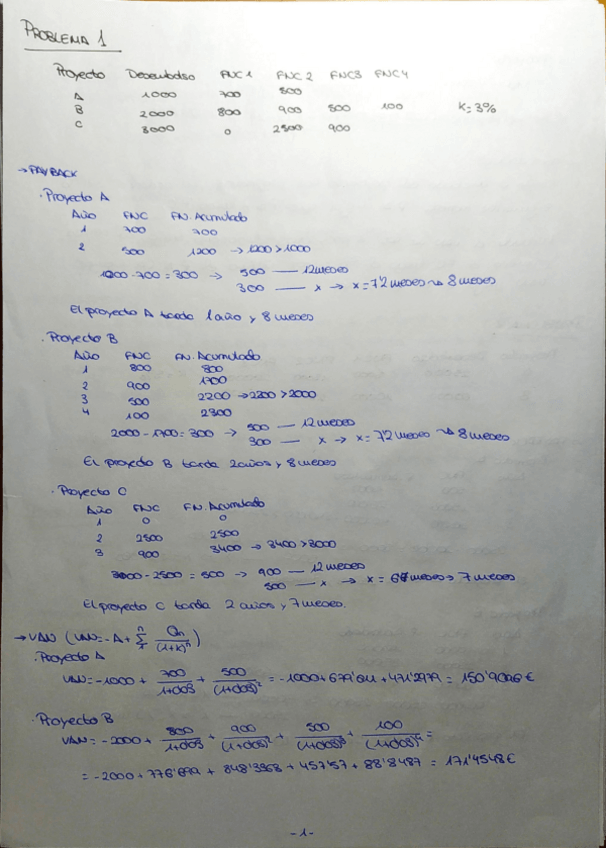 PROBLEMA 1
Proyecto Desembolso FNC1 FNC2 FNC3 FNC4
A 1000 700 500
B 2000 800 900 500 100 K=3%
C 3000 0 2500 900
→ PAYBACK
· Proyecto A
Año FNC FN.Acumulado
1 700 700
2 500 1200 → 1200>1000
1000-700=300 → 500 — 12 meses
300 — x → x=7'2 meses ⇝ 8 meses
El proyecto A tarda 1 año y 8 meses
· Proyecto B
Año FNC FN.Acumulado
1 800 800
2 900 1700
3 500 2200 → 2200>2000
4 100 2300
2000-1700=300 → 500 — 12 meses
300 — x → x=7'2 meses ⇝ 8 meses
El proyecto B tarda 2 años y 8 meses
· Proyecto C
Año FNC FN.Acumulado
1 0 0
2 2500 2500
3 900 3400 → 3400>3000
3000-2500=500 → 900 — 12 meses
500 — x → x= meses → 7 meses
El proyecto C tarda 2 años y 7 meses.
→ VAN (VAN=-A+∑ Qn/(1+k)^n)
· Proyecto A
VAN=-1000+ 700/1+0'03 + 500/(1+0'03)² = -1000+679'611+471'2979 = 150'9096€
· Proyecto B
VAN=-2000+ 800/1+0'03 + 900/(1+0'03)² + 500/(1+0'03)³ + 100/(1+0'03)⁴ =
= -2000+776'699+848'3368+457'57+88'8487 = 171'4548€
-1-